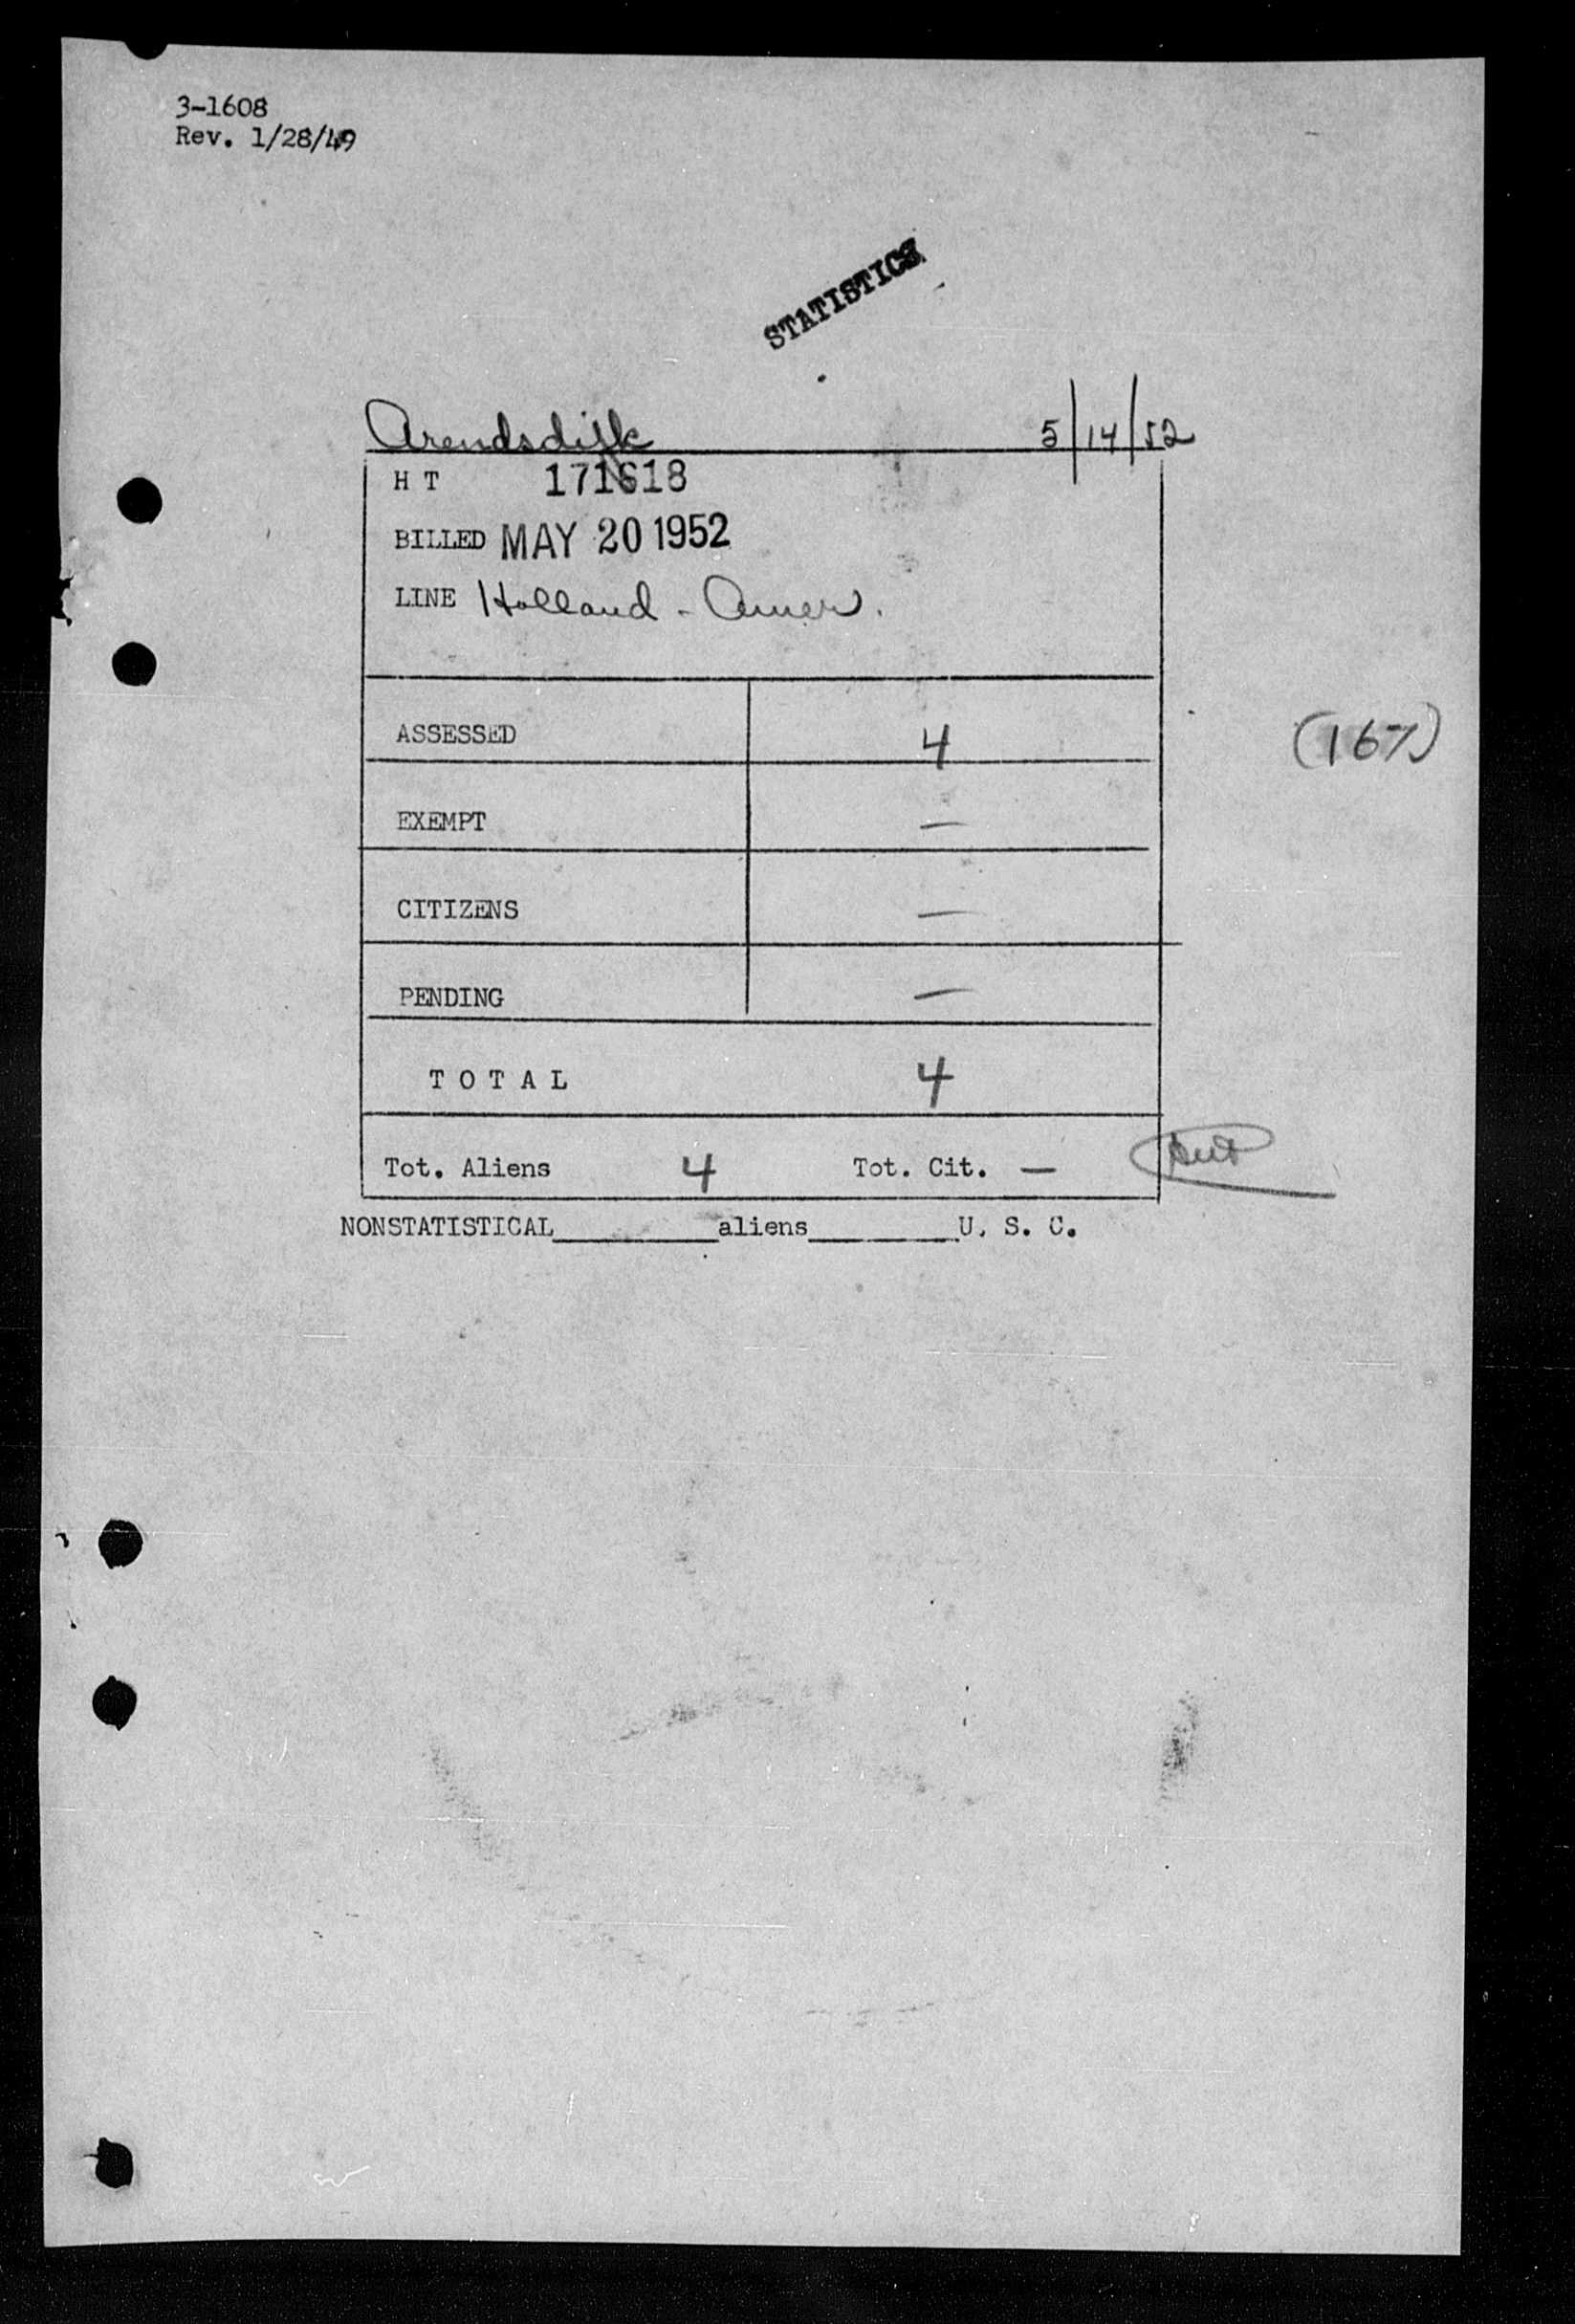 3-1608
Rev. 1/28/49
STATISTICS
Arendsdijk 5/14/52
H T 171618
BILLED MAY 20 1952
LINE Holland - Amer.
ASSESSED 4 (167)
EXEMPT —
CITIZENS —
PENDING —
T O T A L 4
Tot. Aliens 4 Tot. Cit. —
NONSTATISTICAL__________aliens_________U. S. C.